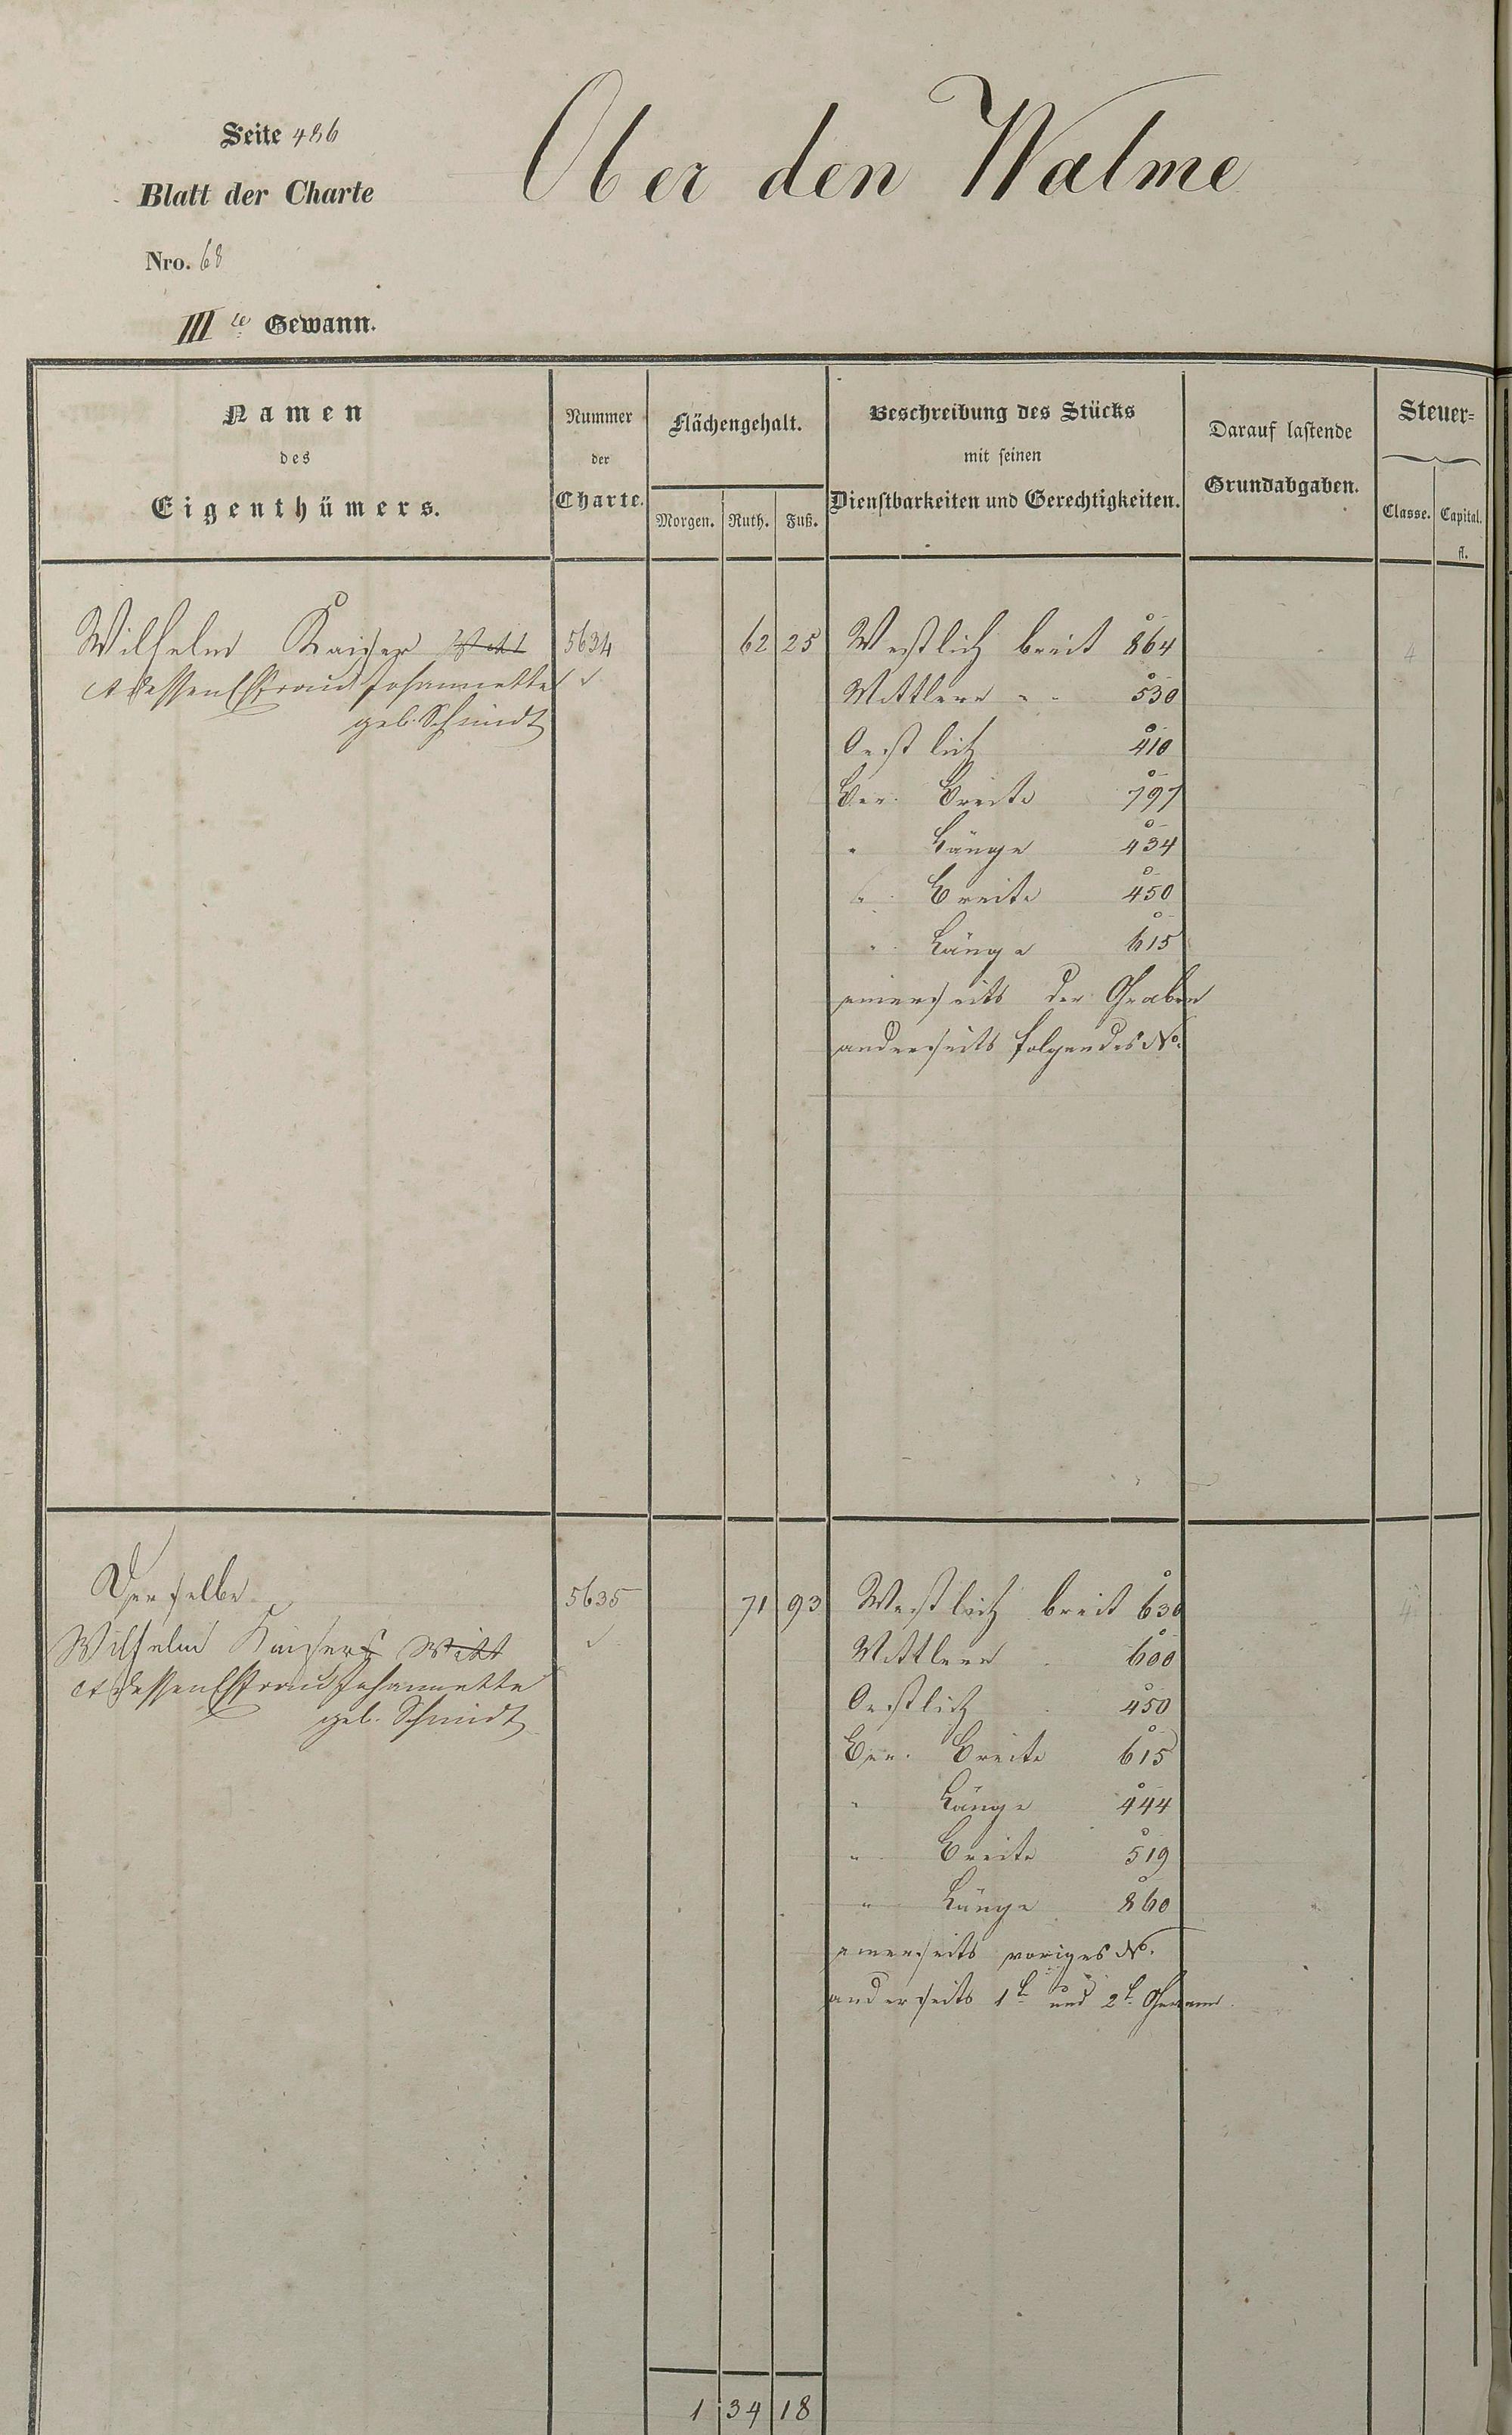 Seite 486
Ober den Walme
Blatt der Charte
Nro. 68
III te Gewann.
Namen
des
Eigenthümers.
Nummer
der
Charte.
Flächengehalt.
Morgen. Ruth. Fuß.
Beschreibung des Stücks
mit seinen
Dienstbarkeiten und Gerechtigkeiten.
Darauf lastende
Grundabgaben.
Steuer-
Classe. Capital.
fl.
Wilhelm Kaiser Witt 5634 62 25 Westlich breit 864 4
dessen Ehefrau Johannette
geb. Schmidt
Mittlere " 530
Oestlich 410
Ber. Breite 797
" Länge 434
" Breite 450
" Länge 615
einerseits der Graben
anderseits folgendes No.
Derselbe 5635 71 93 Westlich breit 630 4
Wilhelm Kaisers Witt
dessen Ehefrau Johannette
geb. Schmidt
Mittlere 600
Oestlich 450
Ber. Breite 615
" Länge 444
" Breite 519
" Länge 860
einerseits voriges No.
anderseits 1t und 2t Gewann
1 34 18